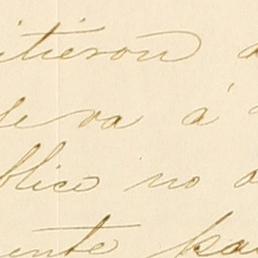 itieron a
se va á
blico no a
ente pa